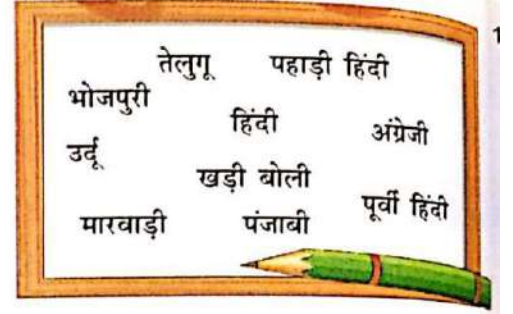 तेलुगू पहाड़ी हिंदी
भोजपुरी
हिंदी अंग्रेजी
उर्दू
खड़ी बोली
पूर्वी हिंदी
मारवाड़ी पंजाबी
1